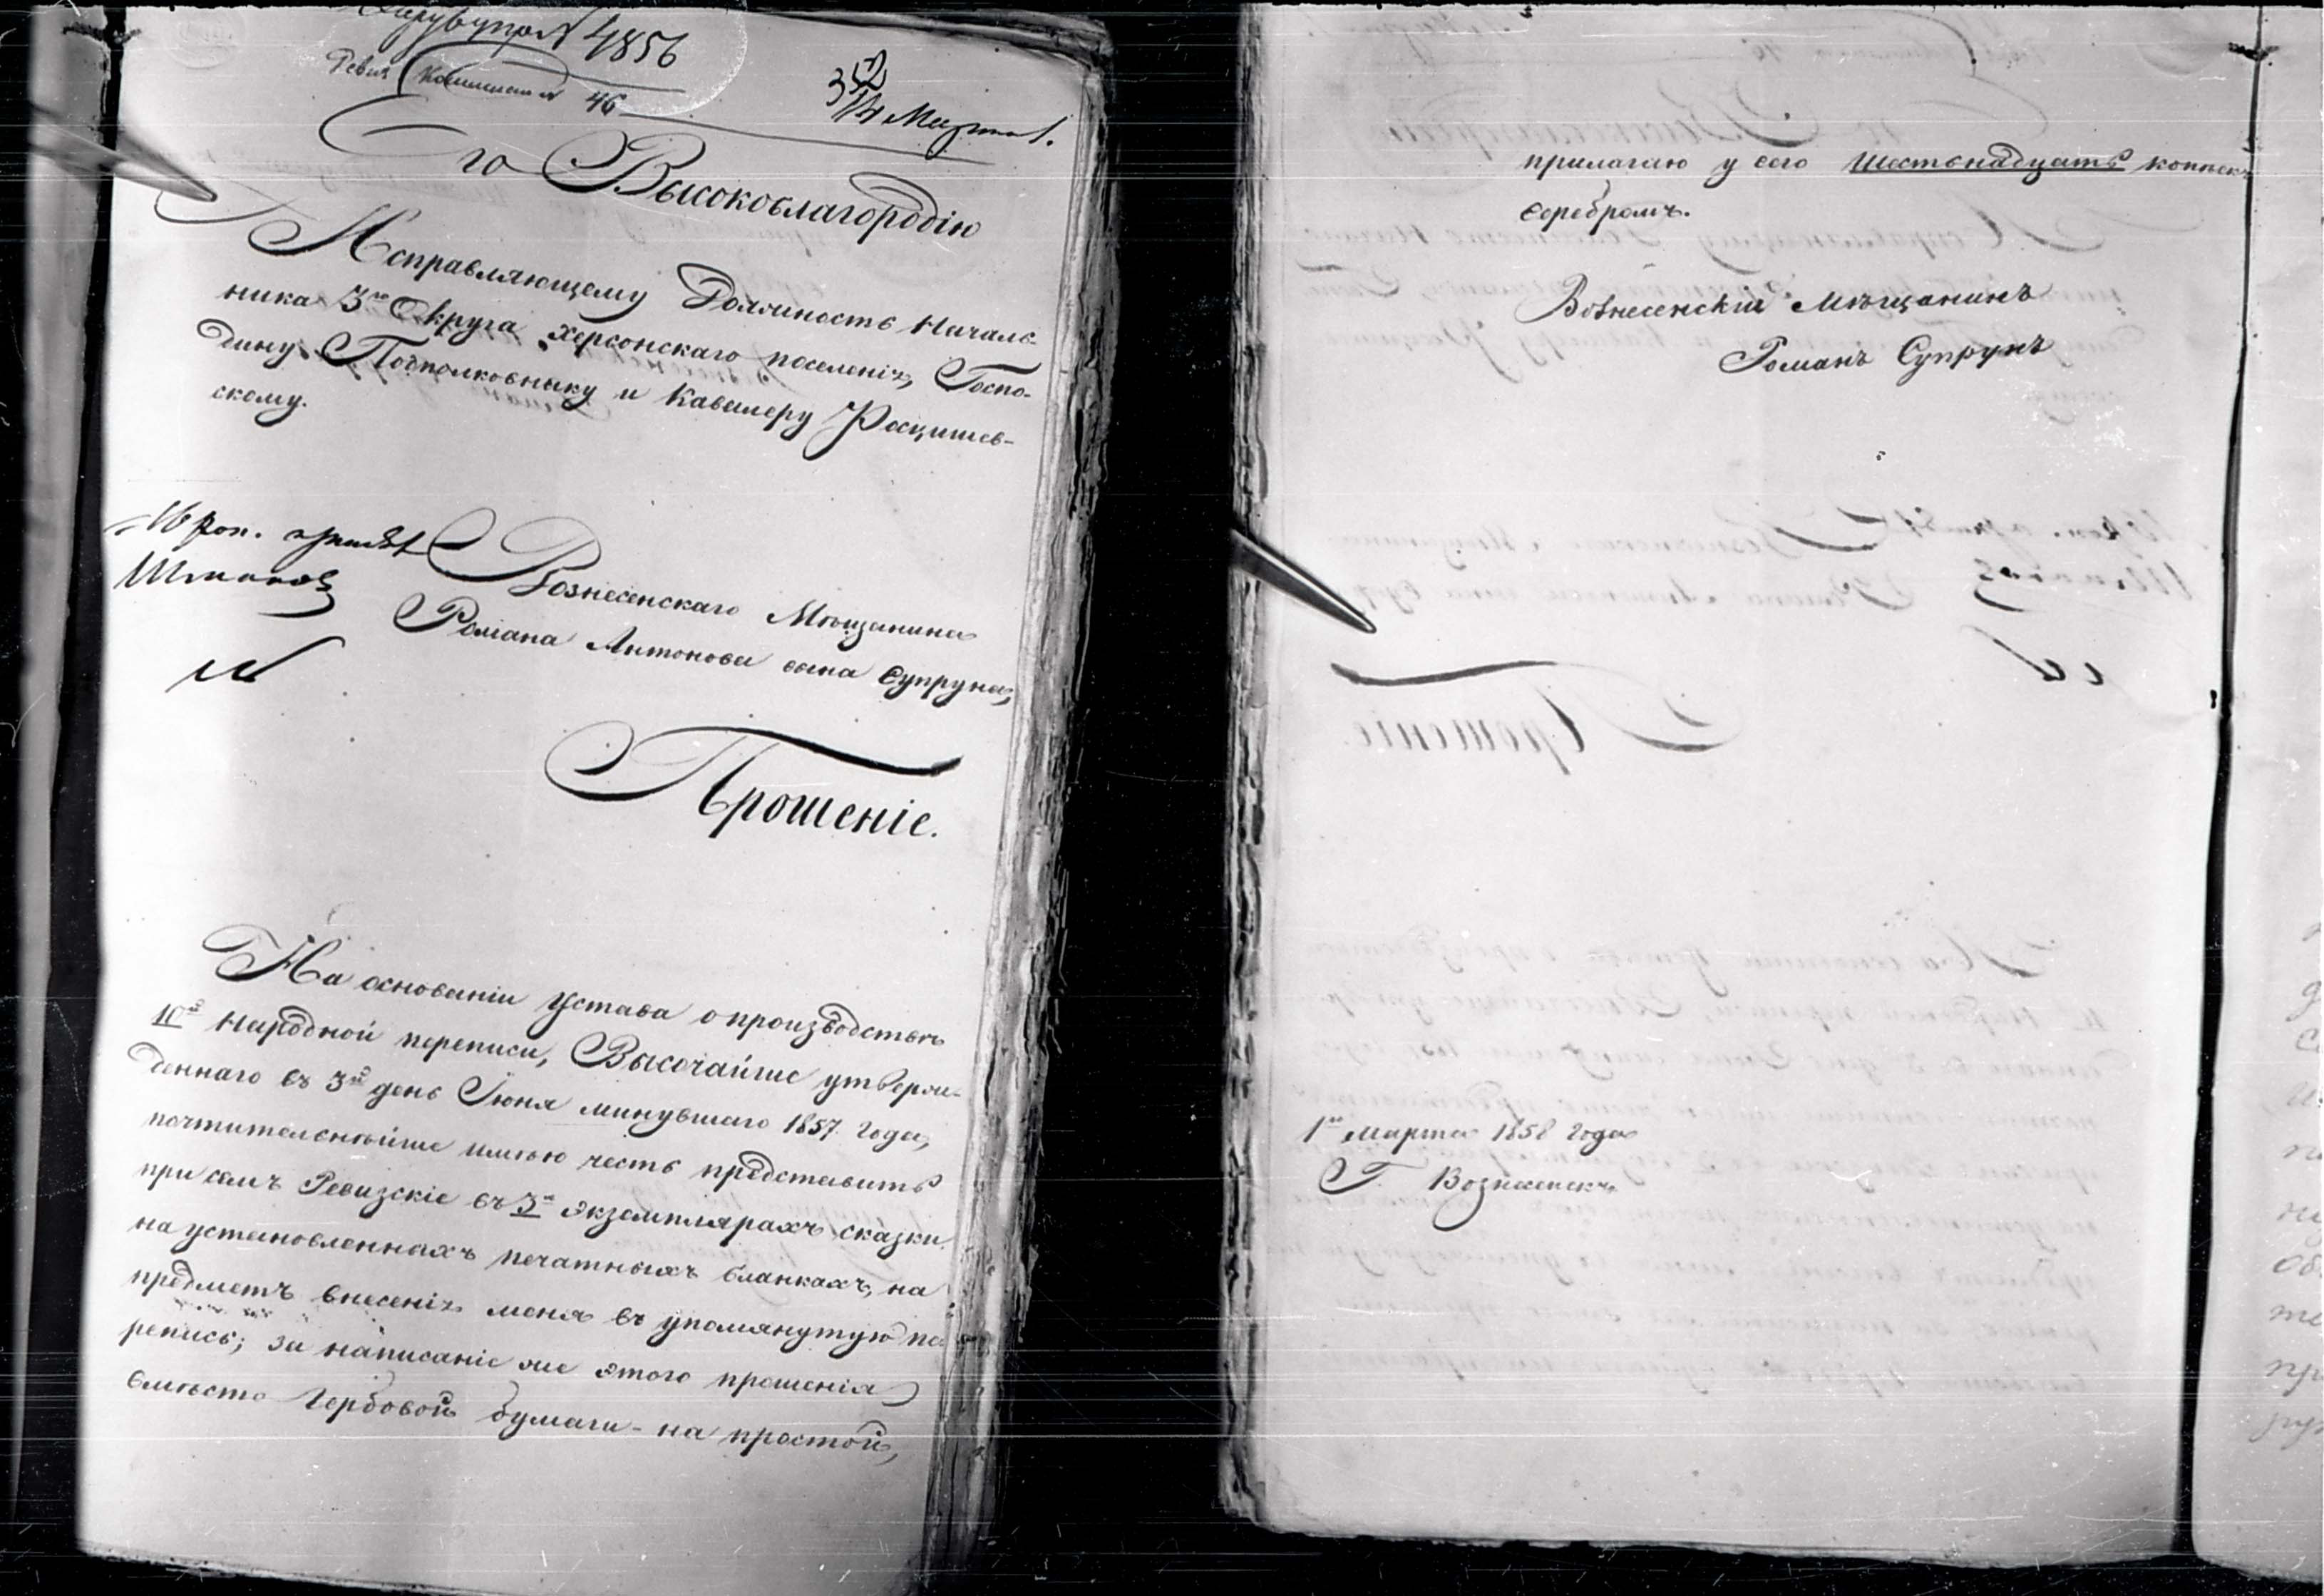 № 4856
Ревиз. Коммисіи № 46
1 Марта
Его Высокоблагородію
Исправляющему Должность Началь-
ника 3го Округа Херсонскаго поселенія, Госпо-
дину Подполковнику и Кавалеру Росцишев-
скому.
16 коп.
Вознесенскаго Мѣщанина
Романа Антонова сына Супруна,
Прошеніе.
На основаніи Устава о производствѣ
10й Народной переписи, Высочайше утверж-
деннаго въ 3й день Іюня минувшаго 1857 года,
почтительнѣйше имѣю честь представить
при семъ Ревизскіе въ 3х экземплярахъ сказки
на установленныхъ печатныхъ бланкахъ, на
предметъ внесенія меня въ упомянутую пе
репись; за написаніе же этого прошенія
вмѣсто Гербовой бумаги - на простой,
прилагаю у сего шестьнадцать копѣекъ
серебромъ.
Вознесенскій Мѣщанинъ
Романъ Супрунъ
1го Марта 1858 года
Г. Вознесенскъ